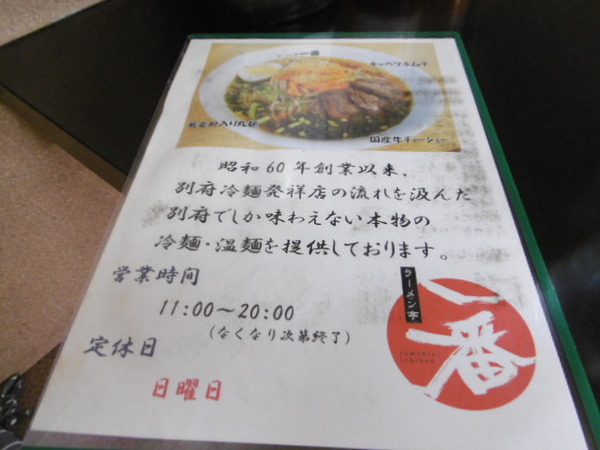 キャベツキムチ
蕎麦粉入り丸麺
国産牛チャーシュー
昭和60年創業以来、
別府冷麺発祥店の流れを汲んだ
別府でしか味わえない本物の
冷麺・温麺を提供しております。
営業時間
11:00～20:00
(なくなり次第終了)
定休日
日曜日
ラーメン亭
一番
ramentei
ichiban